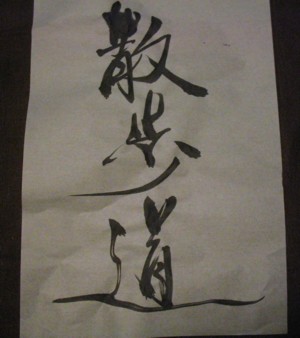 散歩道